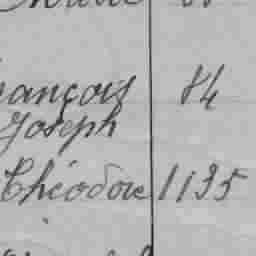 ançois 84
Joseph
Théodore 1135